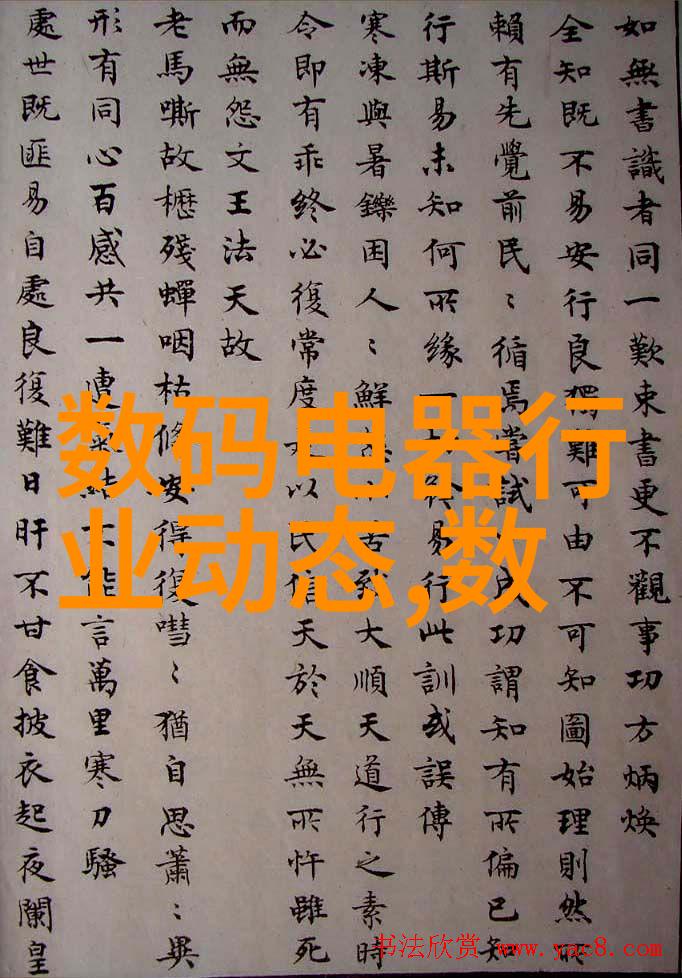 如無書識者同一歎束書更不觀事功方炳煥
全知既不易安行良獨難可由不可知圖始理則然所
賴有先覺前民〻循焉嘗試成功謂知有所偏已知
行斯易未知何所緣一從易行此訓或誤傳
寒凍與暑鑠困人〻鮮大順天道行之素時
令即有乖終必復常度以民信天於天無所忤雖死
而無怨文王法天故
老馬嘶故櫪殘蟬咽枯條安得復嘒〻猶自思蕭〻異
形有同心百感共一氣結不能言萬里寒刀騷
處世既匪易自處良復難日旰不甘食披衣起夜闌皇
数码电器行
业动态,数
书法欣赏 www.yac8.com